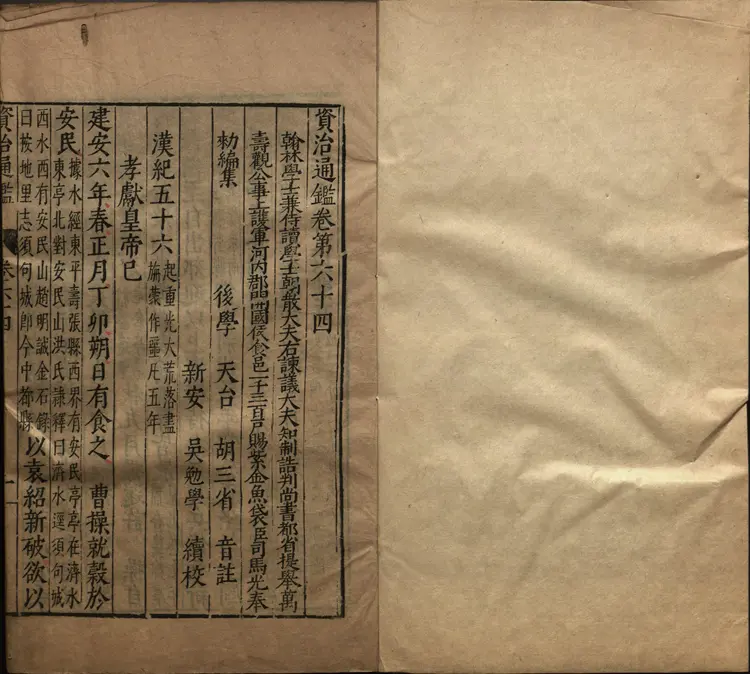 資治通鑑卷第六十四
翰林學士兼侍讀學士朝散大夫右諫議大夫知制誥判尚書都省提舉萬
壽觀公事上護軍河內郡開國侯食邑一千三百戶賜紫金魚袋臣司馬光奉
勑編集
後學 天台 胡三省 音註
新安 吳勉學 續校
漢紀五十六 起重光大荒落盡
旃蒙作噩凡五年
孝獻皇帝己
建安六年春正月丁卯朔日有食之 曹操就穀於
安民 據水經東平壽張縣西界有安民亭亭在濟水
東亭北對安民山洪氏隸釋曰濟水逕須句城
西水西有安民山趙明誠金石錄
曰按地里志須句城即今中都縣 以袁紹新破欲以
資治通鑑 卷六十四 一